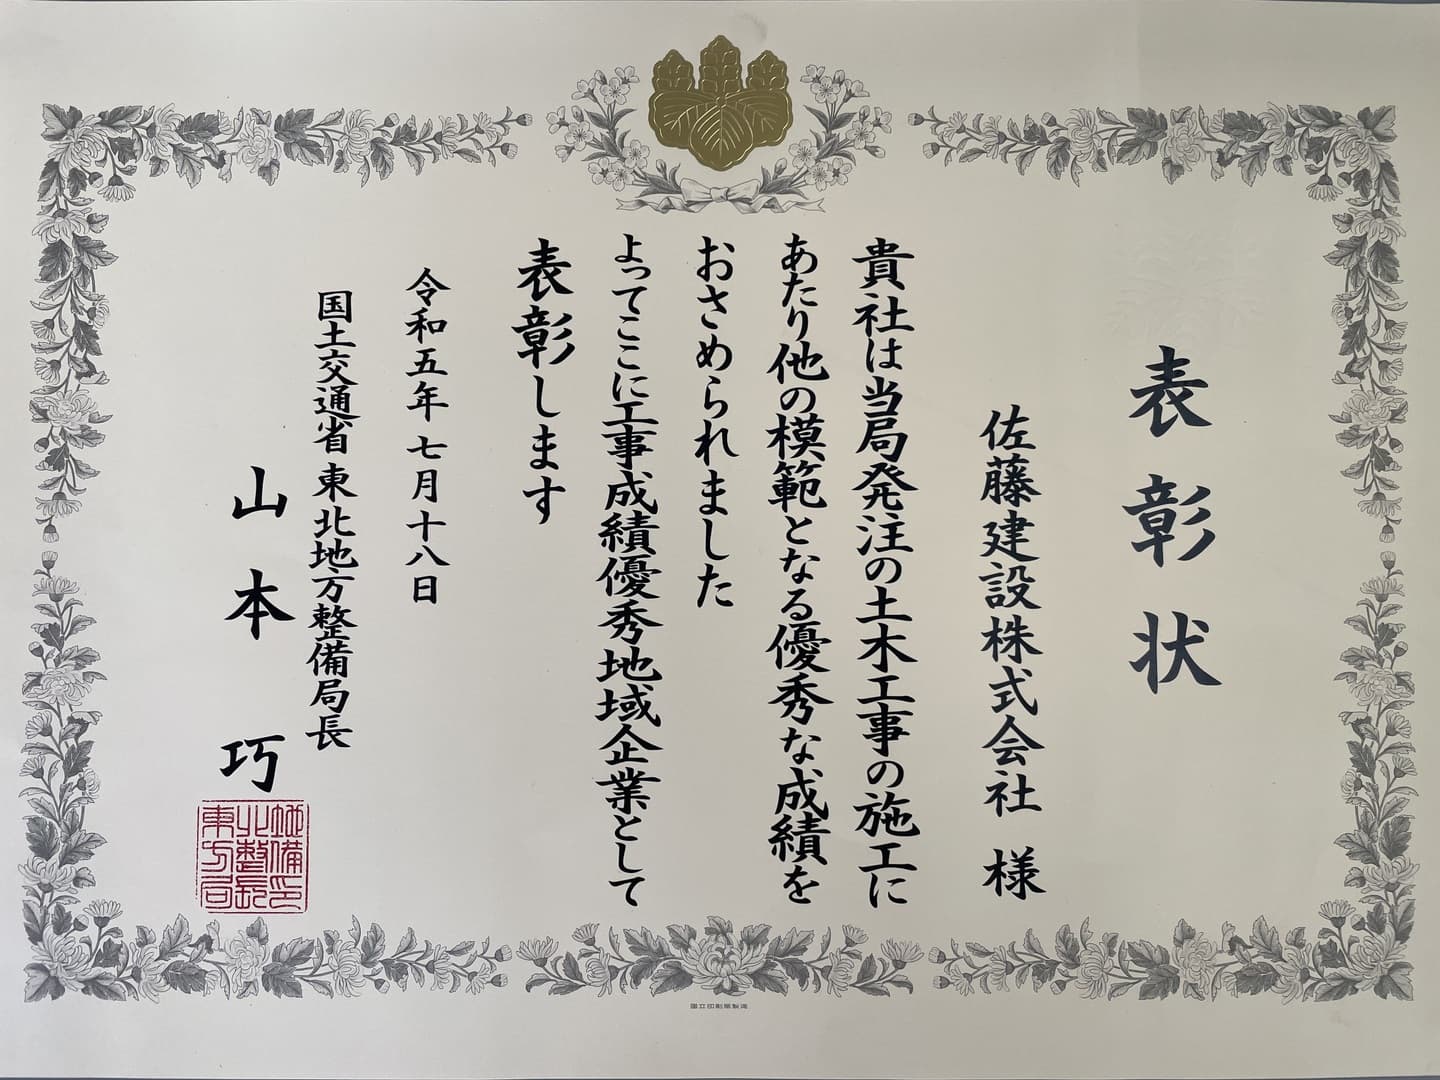 表彰状
佐藤建設株式会社 様
貴社は当局発注の土木工事の施工に
あたり他の模範となる優秀な成績を
おさめられました
よってここに工事成績優秀地域企業として
表彰します
令和五年七月十八日
国土交通省 東北地方整備局長
山本 巧
国立印刷局製造